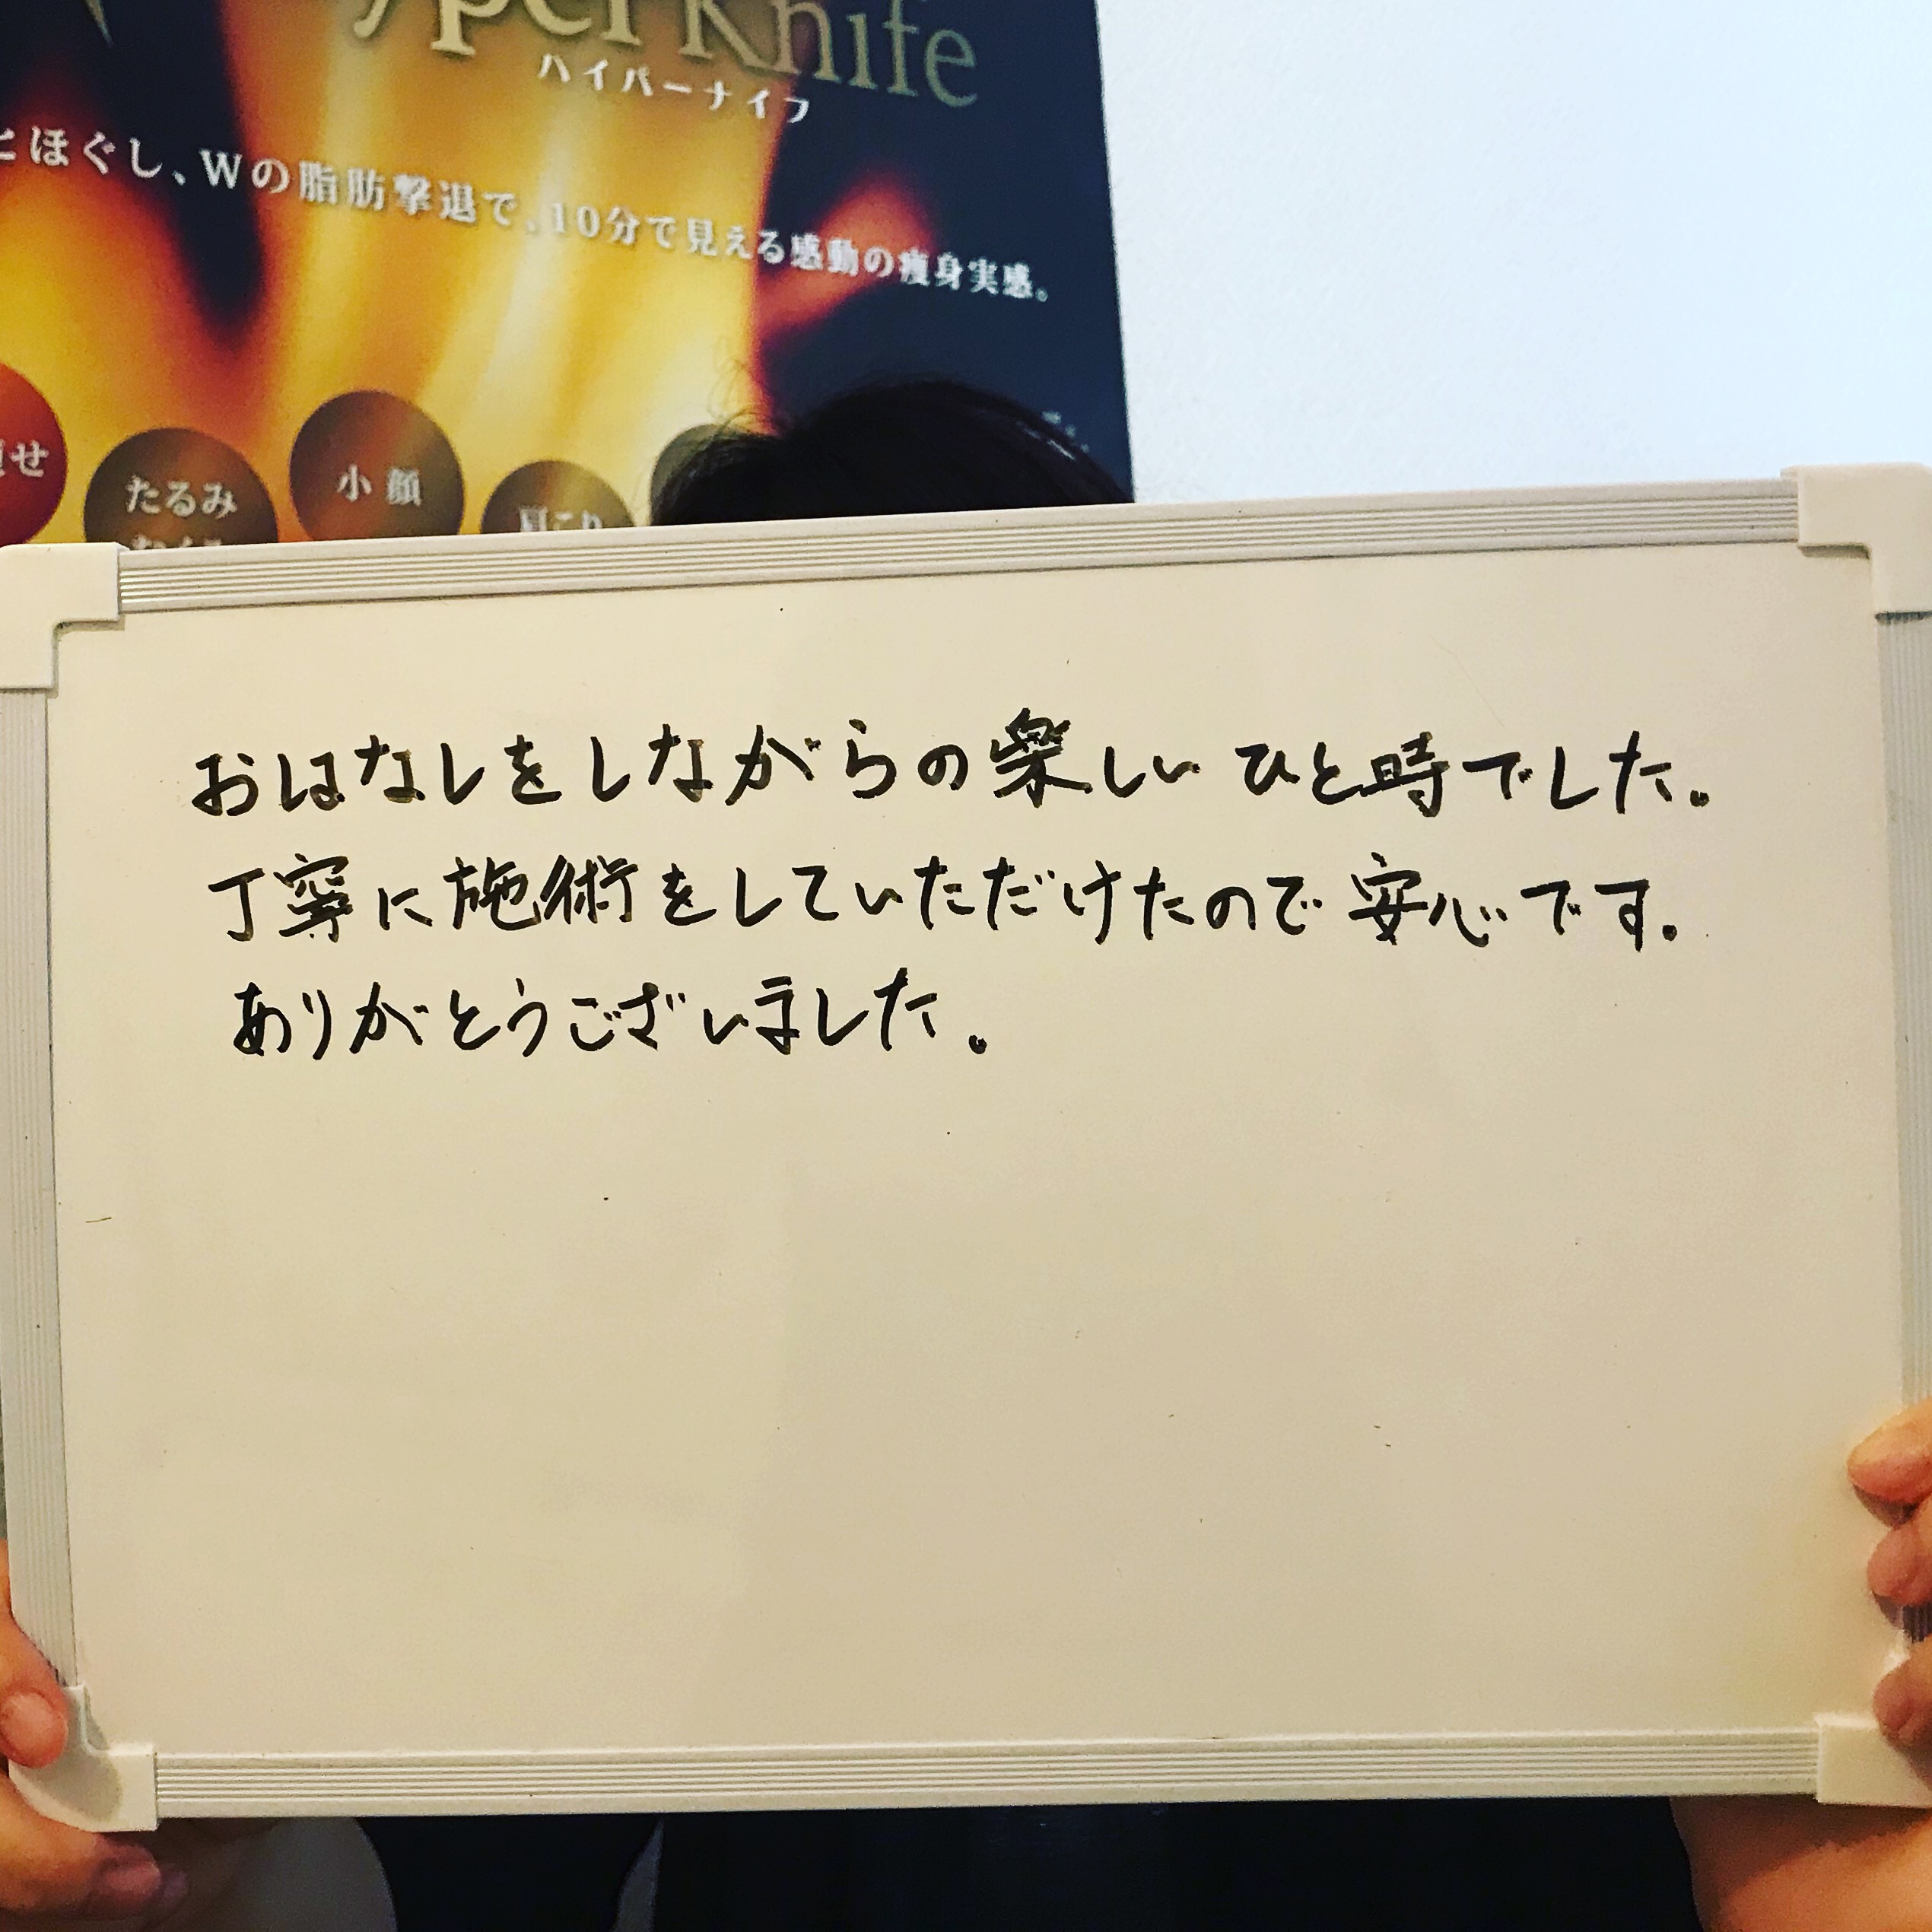 yperKnife
ハイパーナイフ
とほぐし、Wの脂肪撃退で、10分で見える感動の痩身実感。
せ
たるみ
小顔
肩こり
おはなしをしながらの楽しいひと時でした。
丁寧に施術をしていただけたので安心です。
ありがとうございました。